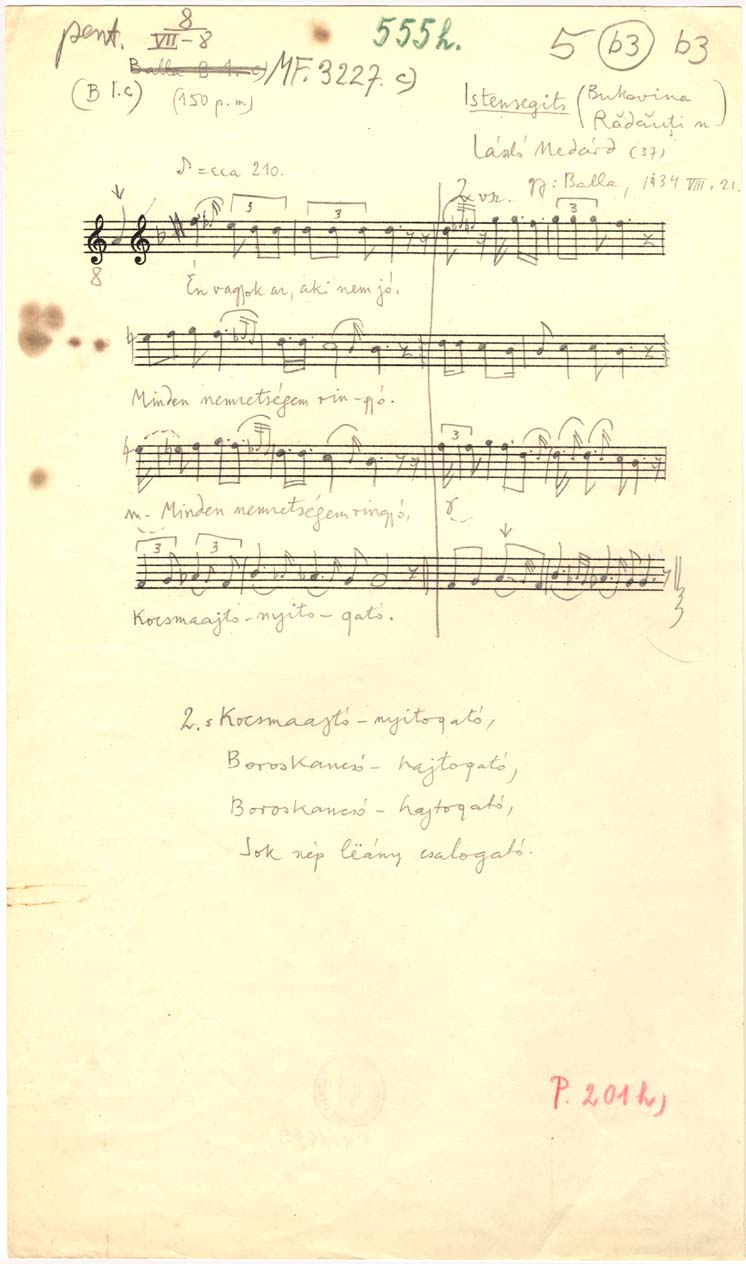 pent. 8 VII-8 555h. 5 b3 b3
Balla B 1. c) MF. 3227. c)
(B I.c) (150 p.m)
Istensegits (Bukovina
Rădăuţi m.)
László Medárd (37)
gy: Balla, 1934 VIII. 21.
♪ = cca 210.
2. vsz.
3 3 3
8
Én vagyok az, aki nem jó.
Minden nemzetségem rin-gyó.
3
m- Minden nemzetségem ringyó,
3 3
Kocsmaajtó-nyito-gató.
2. s Kocsmaajtó-nyitogató,
Boroskancsó-hajtogató,
Boroskancsó-hajtogató,
Sok szép lëány csalogató.
P. 201h,